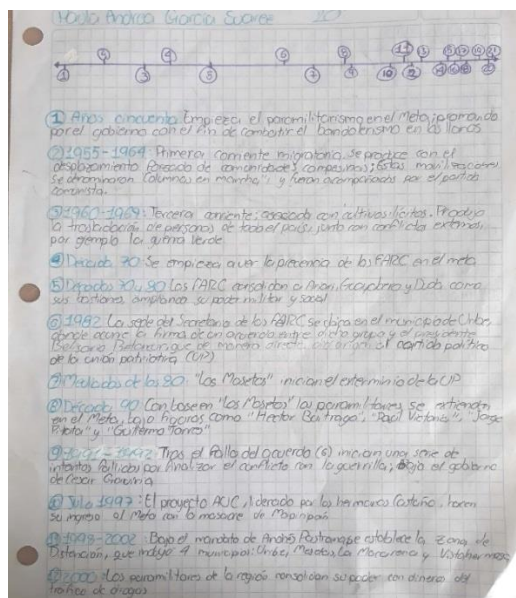 María Andrea García Suarez
① Años cincuenta Empieza el paramilitarismo en el Meta; promovido
por el gobierno con el fin de combatir el bandolerismo en los llanos
② 1955-1964: Primera corriente migratoria. Se produce con el
desplazamiento forzado de comunidades campesinas; Estas movilizaciones
se denominaron "Columnas en marcha", y fueron acompañadas por el partido
comunista.
③ 1960-1969: Tercera corriente; asociada con cultivos ilícitos. Produjo
la trasladación de personas de todo el país; junto con conflictos externos,
por ejemplo la guerra verde
④ Década 70 Se empieza a ver la precencia de las FARC en el meta
⑤ Décadas 70 y 80 Las FARC consolidan a Ariari, Guayabero y Duda como
sus bastiones ampliando su poder militar y social
⑥ 1982 La sede del Secretariado de las FARC se ubica en el municipio de Uribe,
donde ocurre la firma de un acuerdo entre dicho grupo y el presidente
Belisario Betancur que de manera directa da origen al partido político
de la unión patriótica (UP)
⑦ Mediados de los 80: "Los Masetos" inician el exterminio de la UP
⑧ Década 90 Con base en "Los Masetos" los paramilitares se extienden
en el Meta, bajo figuras como "Hector Buitrago", "Raúl Victoria", "Jorge
Pirata" y "Guillermo Torres"
⑨ 1991-1992: Tras el fallo del acuerdo (6) inician una serie de
intentos fallidos por finalizar el conflicto con la guerrilla; bajo el gobierno
de Cesar Gaviria
⑩ Julio 1997: El proyecto AUC, liderado por los hermanos Castaño, hacen
su ingreso al Meta con la masacre de Mapiripán
⑪ 1998-2002: Bajo el mandato de Andrés Pastrana se establece la Zona de
Distención, que incluyó 4 municipios: Uribe, Mesetas, La Macarena y Vistahermosa
⑫ 2000: Los paramilitares de la región consolidan su poder con dineros del
tráfico de drogas